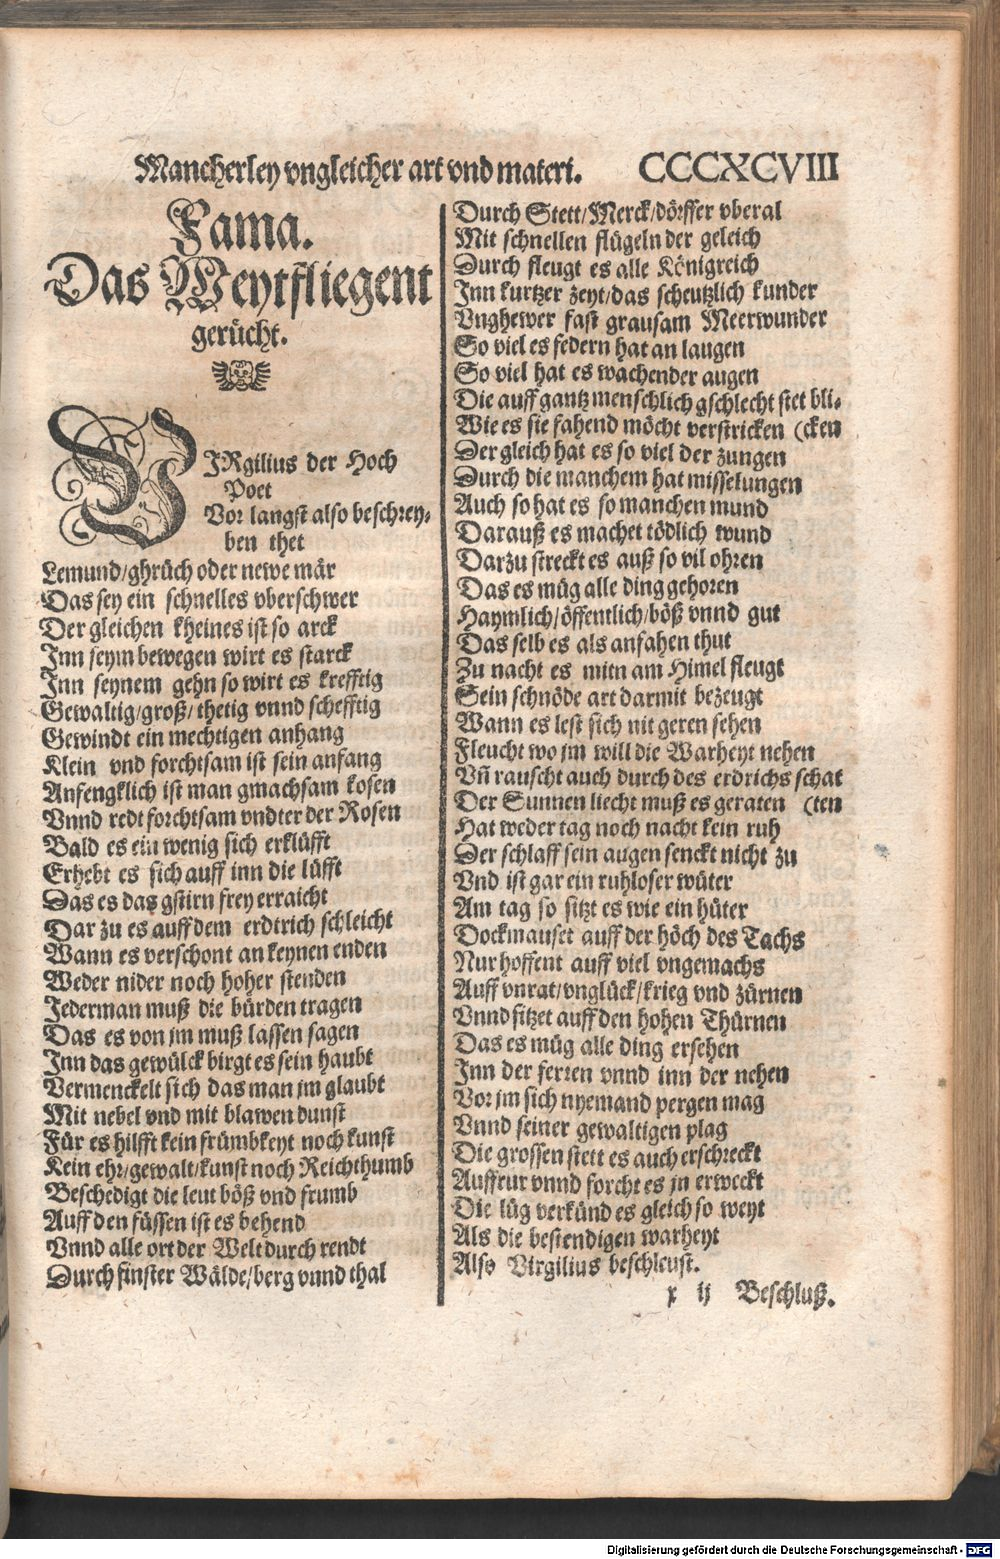 Mancherley vngleicher art vnd materi. CCCXCVIII
Fama.
Das Weytfliegent
gerücht.
VIRgilius der Hoch
Poet
Vor langst also beschrey⸗
ben thet
Lemund/ghrüch oder newe mär
Das sey ein schnelles vberschwer
Der gleichen kheines ist so arck
Inn seym bewegen wirt es starck
Inn seynem gehn so wirt es krefftig
Gewaltig/groß/thetig vnnd schefftig
Gewindt ein mechtigen anhang
Klein vnd forchtsam ist sein anfang
Anfengklich ist man gmachsam kosen
Vnnd redt forchtsam vndter der Rosen
Bald es ein wenig sich erklüfft
Erhebt es sich auff inn die lüfft
Das es das gstirn frey erraicht
Dar zu es auff dem erdtrich schleicht
Wann es verschont an keynen enden
Weder nider noch hoher stenden
Jederman muß die bürden tragen
Das es von jm muß lassen sagen
Inn das gewülck birgt es sein haubt
Vermenckelt sich das man jm glaubt
Mit nebel vnd mit blawen dunst
Für es hilfft kein frümbkeyt noch kunst
Kein ehr/gewalt/kunst noch Reichthumb
Beschedigt die leut böß vnd frumb
Auff den füssen ist es behend
Vnnd alle ort der Welt durch rendt
Durch finster Wälde/berg vnnd thal
Durch Stett/Merck/dörffer vberal
Mit schnellen flügeln der geleich
Durch fleugt es alle Königreich
Inn kurtzer zeyt/das scheutzlich kunder
Vnghewer fast grausam Meerwunder
So viel es federn hat an laugen
So viel hat es wachender augen
Die auff gantz menschlich gschlecht stet bli⸗
Wie es sie fahend möcht verstricken (cken
Der gleich hat es so viel der zungen
Durch die manchem hat misselungen
Auch so hat es so manchen mund
Darauß es machet tödlich wund
Darzu streckt es auß so vil ohren
Das es müg alle ding gehoren
Haymlich/öffentlich/böß vnnd gut
Das selb es als anfahen thut
Zu nacht es mitn am Himel fleugt
Sein schnöde art darmit bezeugt
Wann es lest sich nit geren sehen
Fleucht wo jm will die Warheyt nehen
Vñ rauscht auch durch des erdrichs schat
Der Sunnen liecht muß es geraten (ten
Hat weder tag noch nacht kein ruh
Der schlaff sein augen senckt nicht zu
Vnd ist gar ein ruhloser wüter
Am tag so sitzt es wie ein hüter
Dockmauset auff der höch des Tachs
Nur hoffent auff viel vngemachs
Auff vnrat/vnglück/krieg vnd zürnen
Vnnd sitzet auff den hohen Thürnen
Das es müg alle ding ersehen
Inn der ferren vnnd inn der nehen
Vor jm sich nyemand pergen mag
Vnnd seiner gewaltigen plag
Die grossen stett es auch erschreckt
Auffrur vnnd forcht es jn erweckt
Die lüg verkünd es gleich so weyt
Als die bestendigen warheyt
Also Virgilius beschleust.
x ij Beschluß.
Digitalisierung gefördert durch die Deutsche Forschungsgemeinschaft - DFG